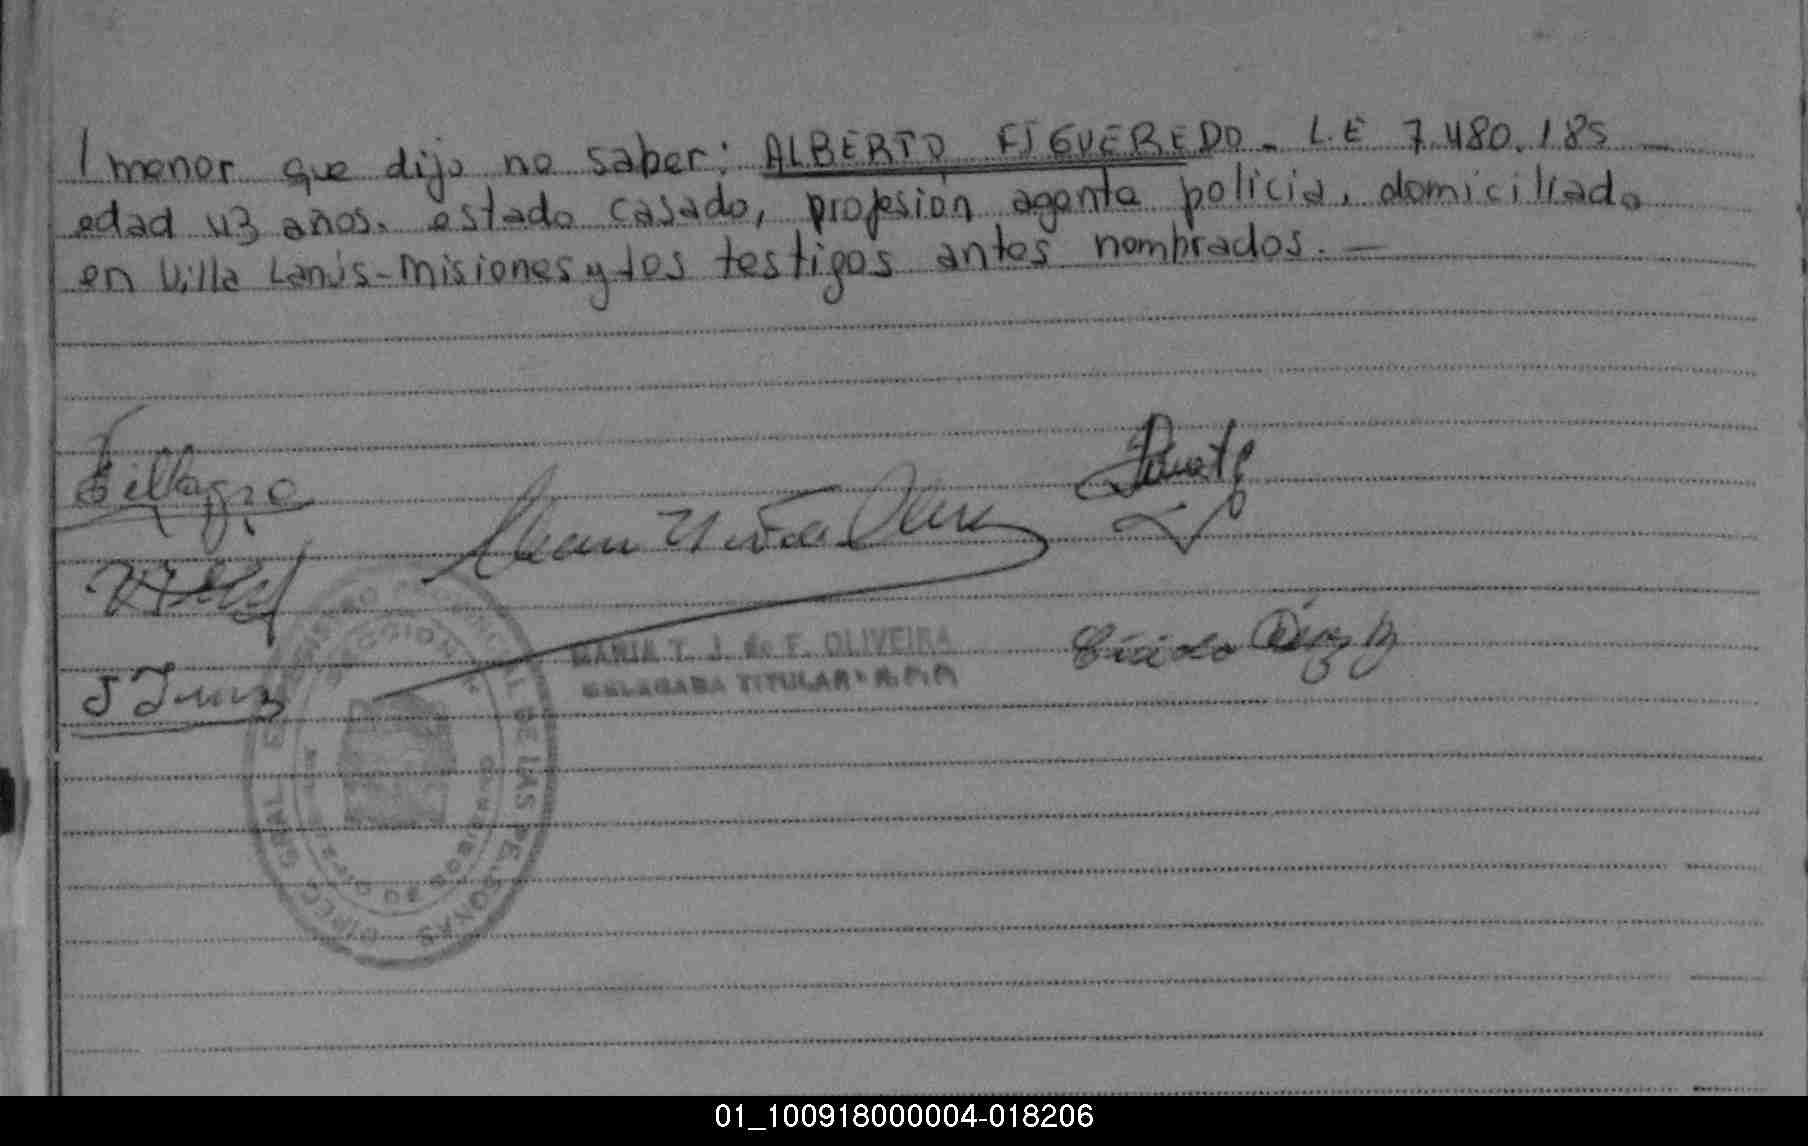 l menor que dijo no saber: ALBERTO FIGUEREDO. L.E 7.480.185 —
edad 43 años. estado casado, profesión agente policia, domiciliado
en Villa Lanús-Misiones y los testigos antes nombrados. —
Villagra
MARIA T. J. de F. OLIVEIRA
DELEGADA TITULAR · R.P.P
REGISTRO PROVINCIAL DE LAS PERSONAS
DIRECC. GRAL.
01_100918000004-018206